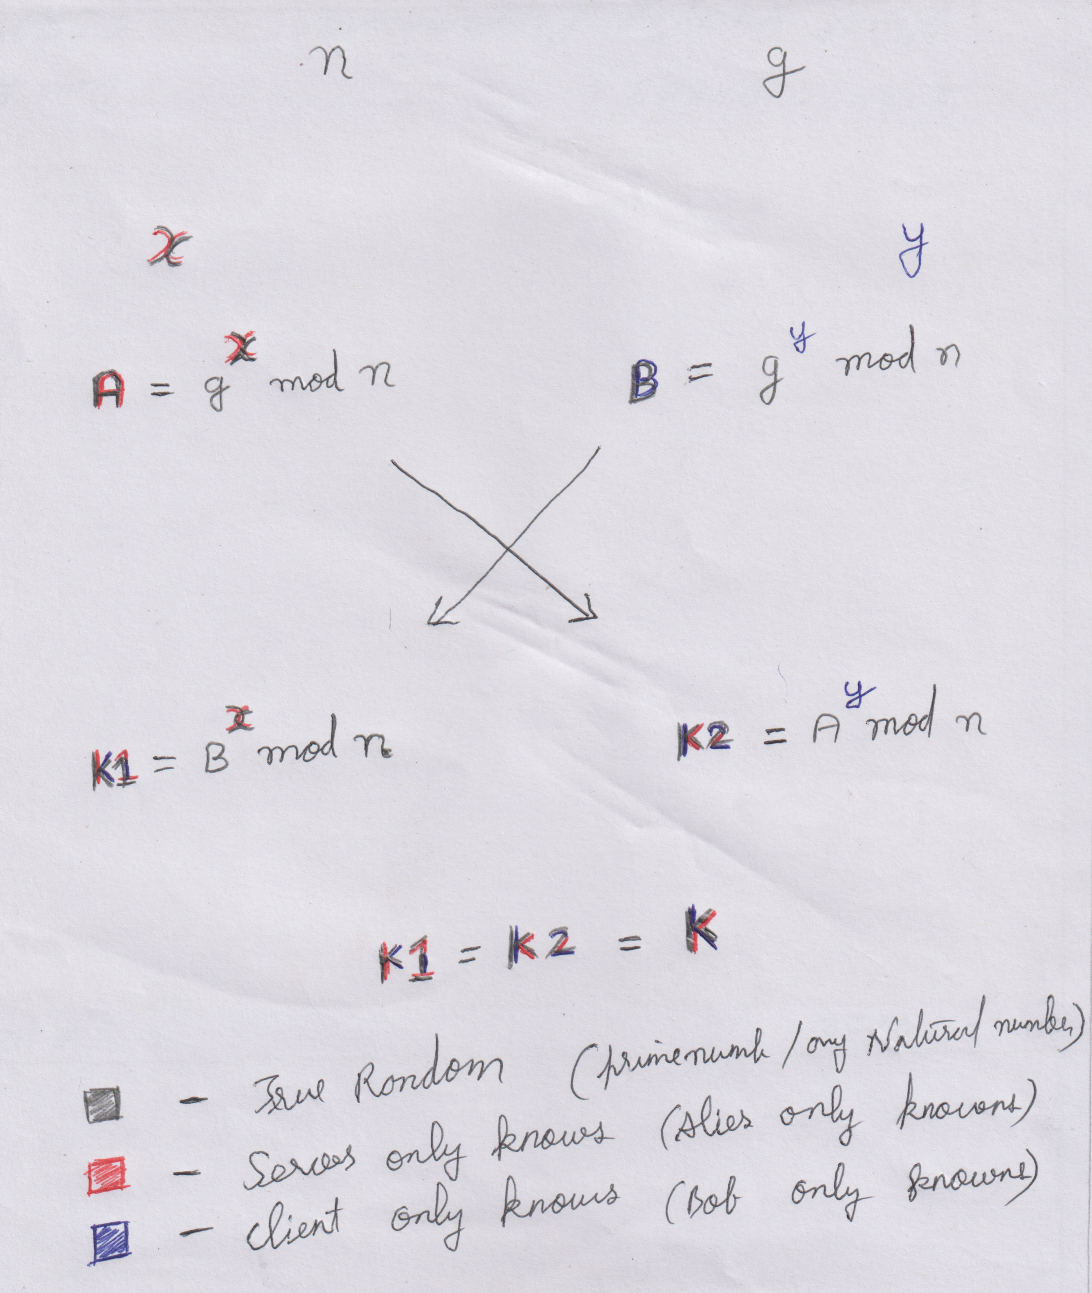 n g
x y
A = g^x mod n B = g^y mod n
K1 = B^x mod n K2 = A^y mod n
K1 = K2 = K
- True Random (primenumb / any Natural number)
- Server only knows (Alies only knowns)
- client only knows (Bob only knowns)